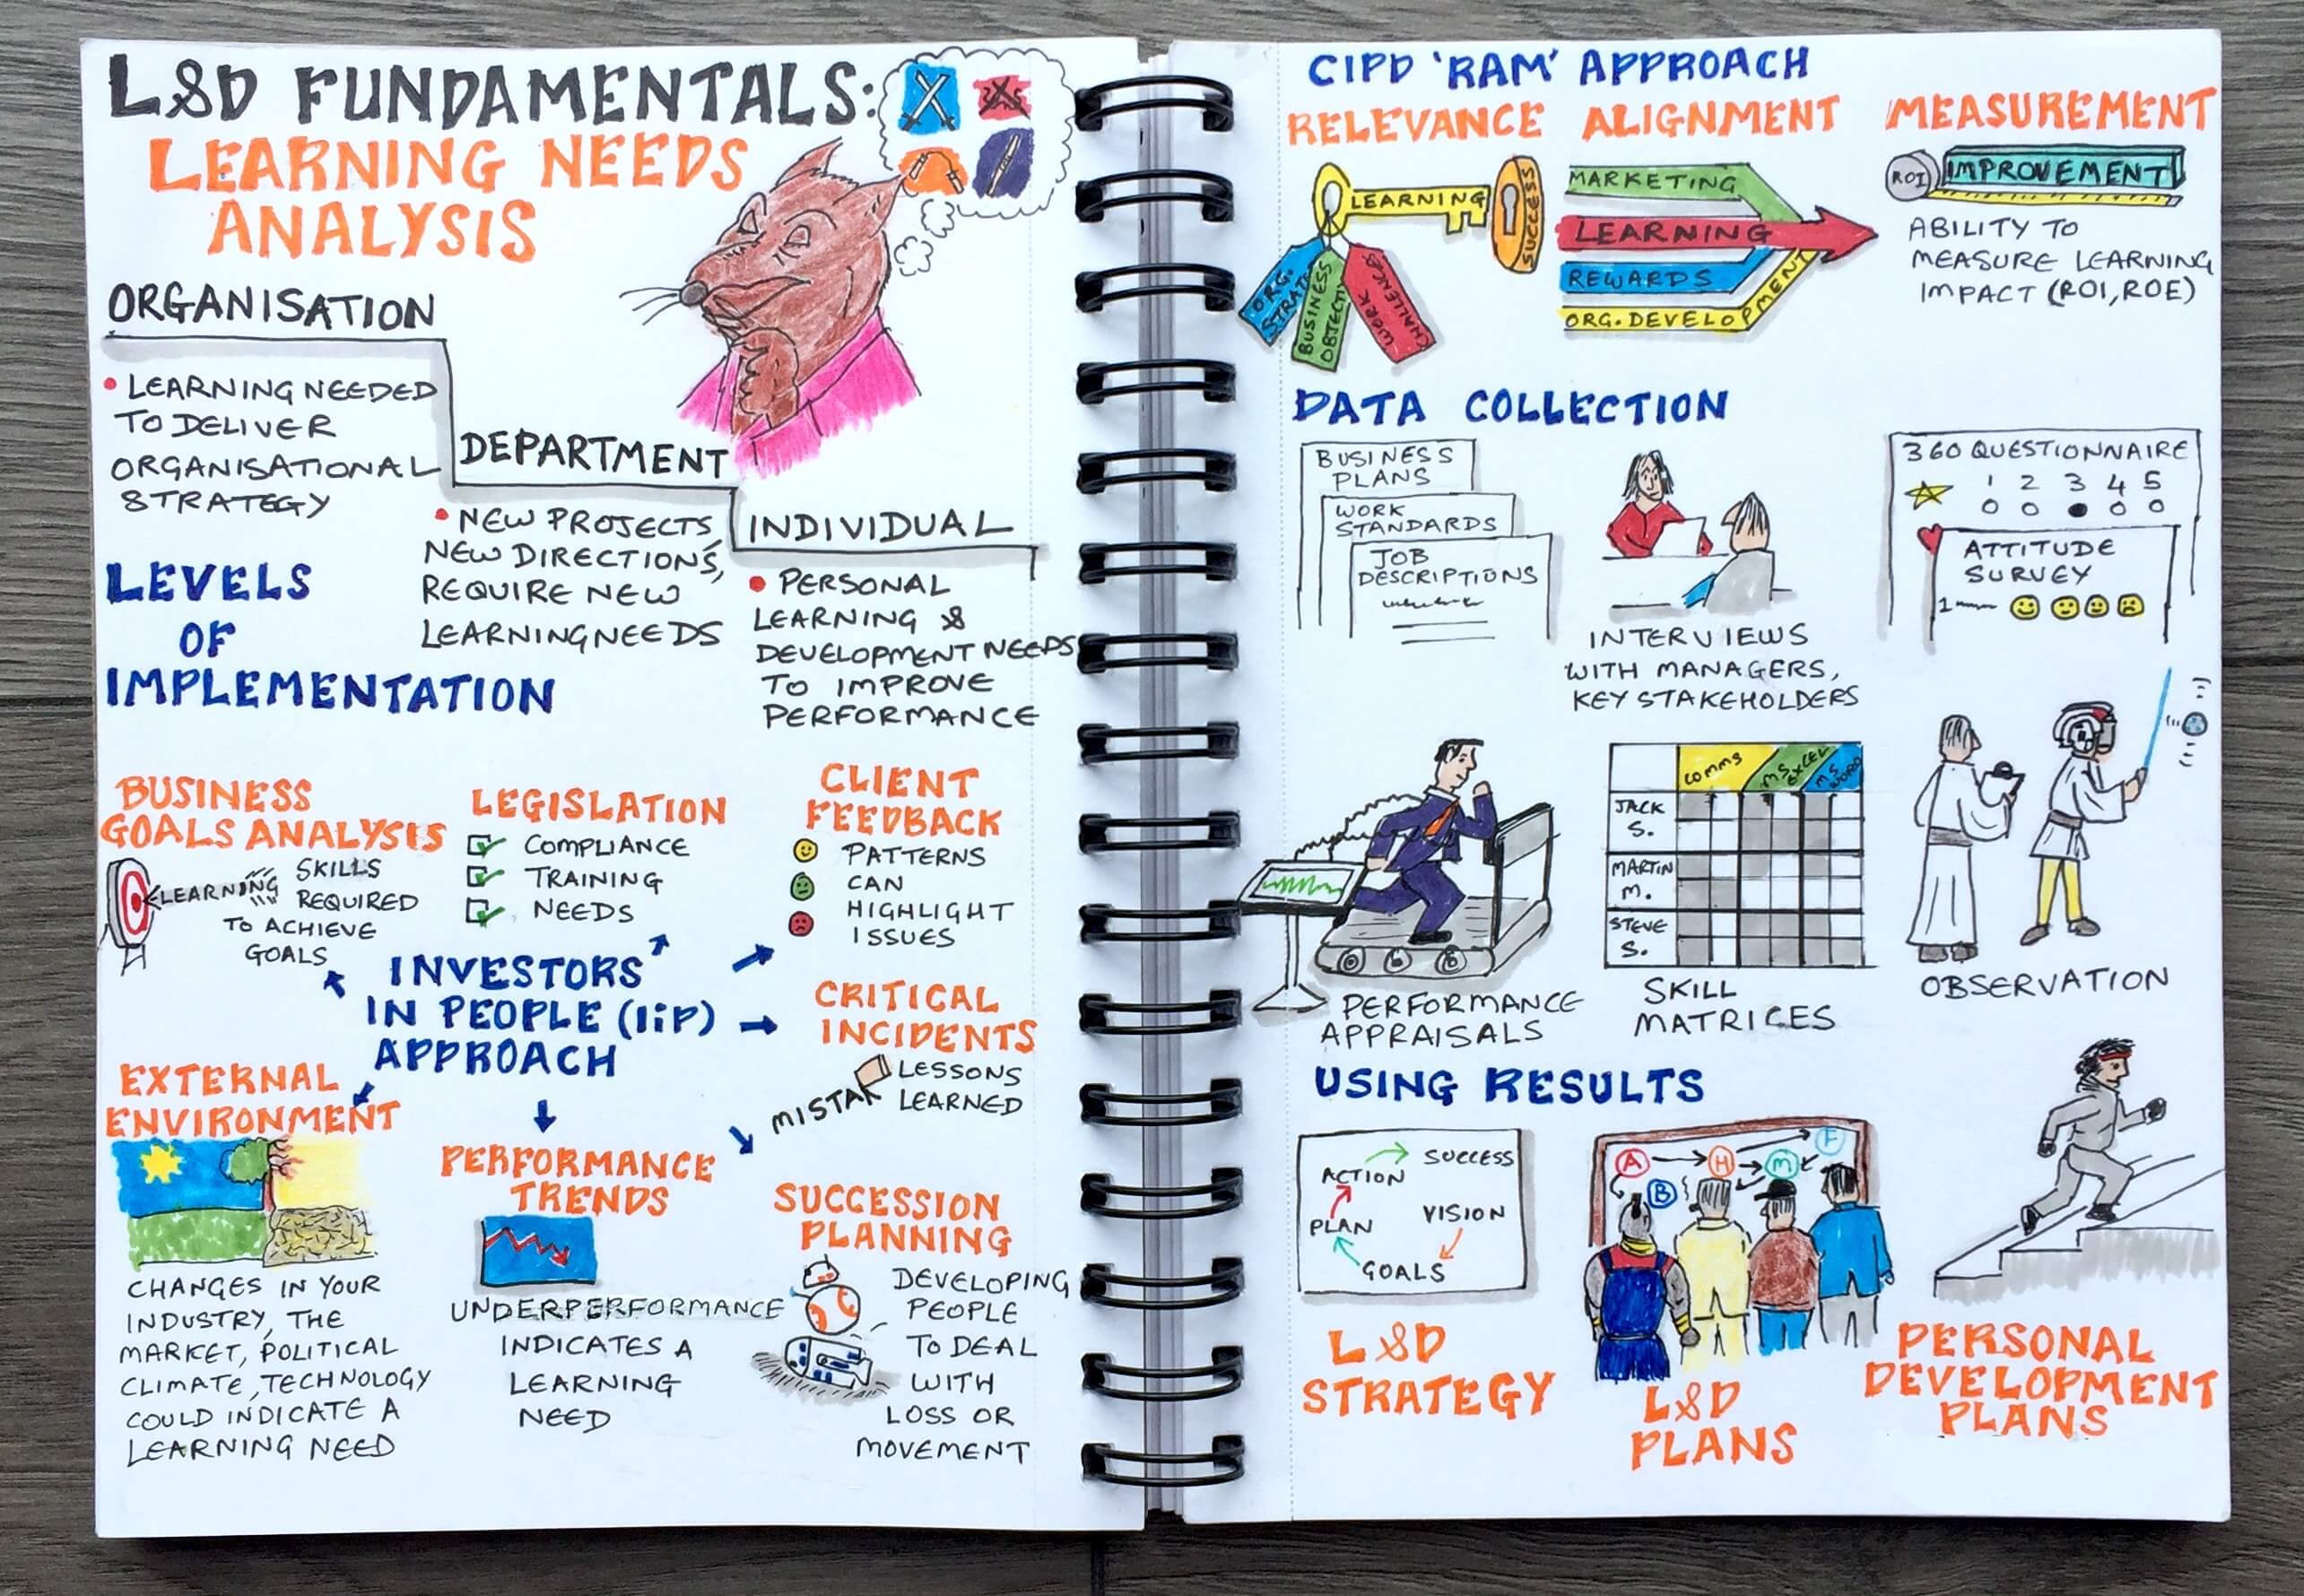 L&D FUNDAMENTALS:
LEARNING NEEDS
ANALYSIS
ORGANISATION
• LEARNING NEEDED
TO DELIVER
ORGANISATIONAL
STRATEGY
DEPARTMENT
• NEW PROJECTS,
NEW DIRECTIONS,
REQUIRE NEW
LEARNING NEEDS
INDIVIDUAL
• PERSONAL
LEARNING &
DEVELOPMENT NEEDS
TO IMPROVE
PERFORMANCE
LEVELS
OF
IMPLEMENTATION
BUSINESS
GOALS ANALYSIS
LEARNING
SKILLS
REQUIRED
TO ACHIEVE
GOALS
LEGISLATION
COMPLIANCE
TRAINING
NEEDS
CLIENT
FEEDBACK
PATTERNS
CAN
HIGHLIGHT
ISSUES
INVESTORS
IN PEOPLE (IiP)
APPROACH
CRITICAL
INCIDENTS
MISTAK
LESSONS
LEARNED
EXTERNAL
ENVIRONMENT
CHANGES IN YOUR
INDUSTRY, THE
MARKET, POLITICAL
CLIMATE, TECHNOLOGY
COULD INDICATE A
LEARNING NEED
PERFORMANCE
TRENDS
UNDERPERFORMANCE
INDICATES A
LEARNING
NEED
SUCCESSION
PLANNING
DEVELOPING
PEOPLE
TO DEAL
WITH
LOSS OR
MOVEMENT
CIPD 'RAM' APPROACH
RELEVANCE
LEARNING
SUCCESS
ORG.
STRAT
BUSINESS
OBJECTI
WORK
CHALLENGES
ALIGNMENT
MARKETING
LEARNING
REWARDS
ORG. DEVELOPMENT
MEASUREMENT
ROI
IMPROVEMENT
ABILITY TO
MEASURE LEARNING
IMPACT (ROI, ROE)
DATA COLLECTION
BUSINESS
PLANS
WORK
STANDARDS
JOB
DESCRIPTIONS
INTERVIEWS
WITH MANAGERS,
KEY STAKEHOLDERS
360 QUESTIONNAIRE
1 2 3 4 5
ATTITUDE
SURVEY
1
PERFORMANCE
APPRAISALS
COMMS
MS EXCEL
MS WORD
JACK
S.
MARTIN
M.
STEVE
S.
SKILL
MATRICES
OBSERVATION
USING RESULTS
ACTION
SUCCESS
PLAN
VISION
GOALS
L&D
STRATEGY
A
H
F
M
B
L&D
PLANS
PERSONAL
DEVELOPMENT
PLANS